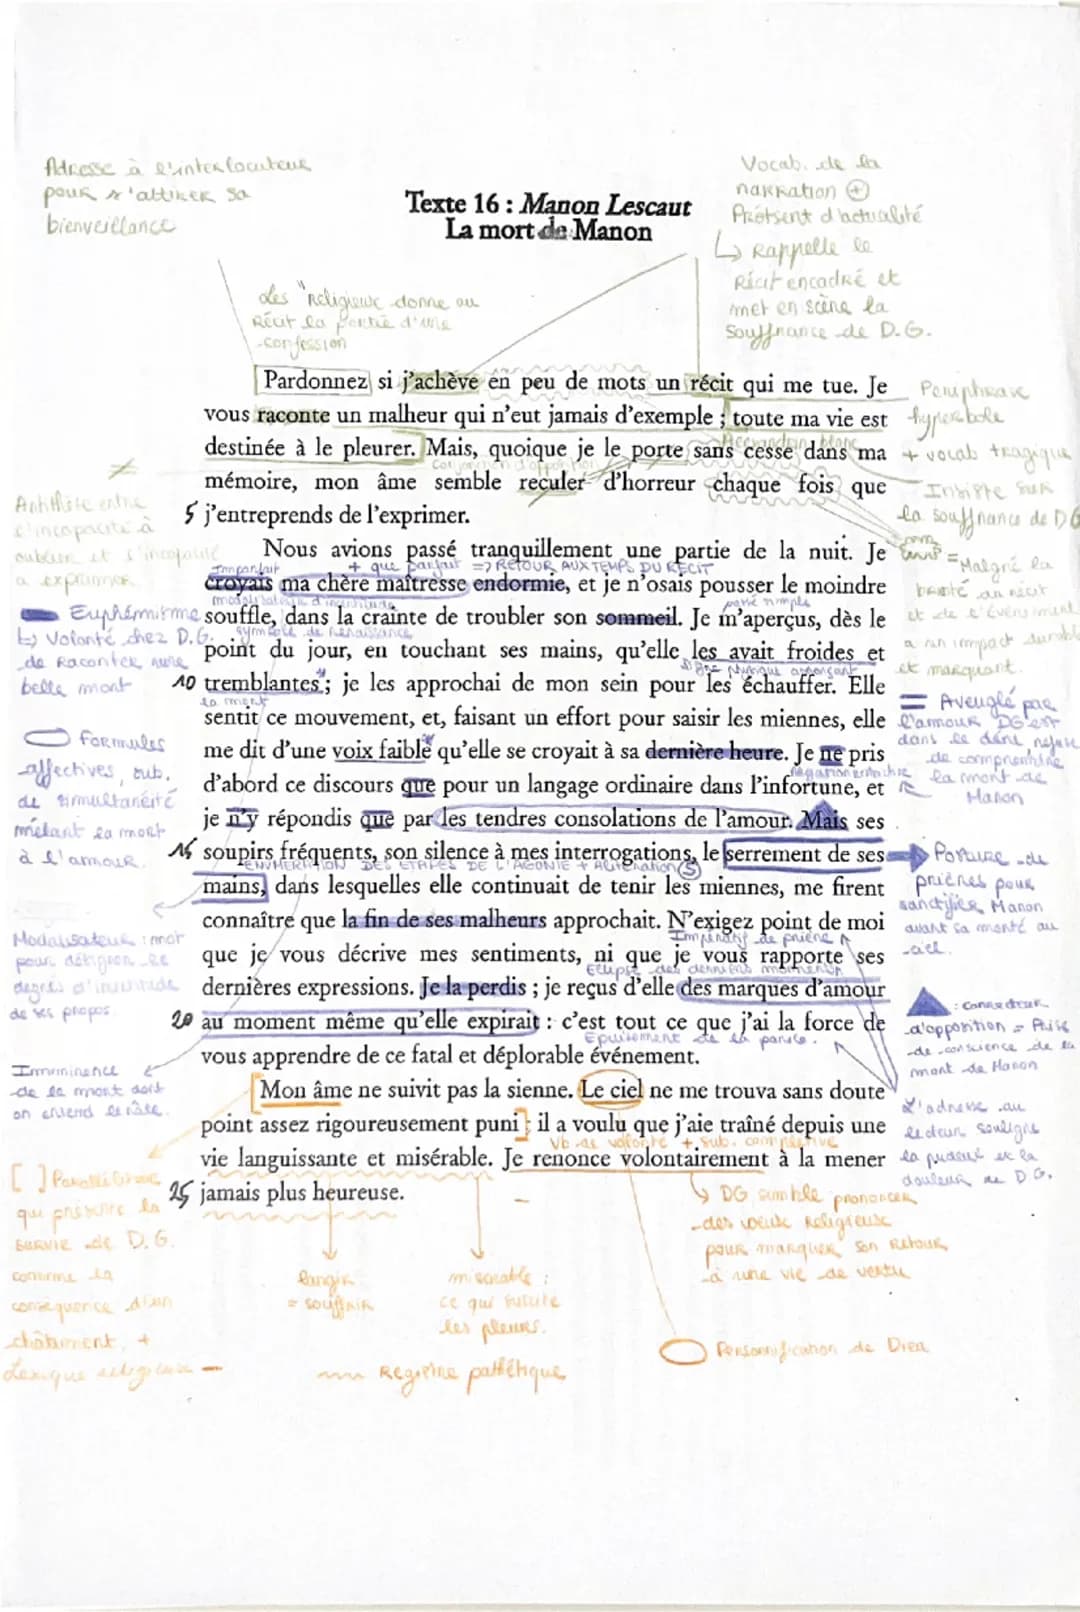 Adresse à l'interlocuteur
pour s'attirer sa
bienveillance
Vocab. de la
narration ⊕
Présent d'actualité
↳ Rappelle le
récit encadré et
met en scène la
souffrance de D.G.
Texte 16 : Manon Lescaut
La mort de Manon
Les "religieux donne au
Récit la portée d'une
confession
Pardonnez si j'achève en peu de mots un récit qui me tue. Je
vous raconte un malheur qui n'eut jamais d'exemple ; toute ma vie est
destinée à le pleurer. Mais, quoique je le porte sans cesse dans ma
mémoire, mon âme semble reculer d'horreur chaque fois que
5 j'entreprends de l'exprimer.
Périphrase
hyperbole
+ vocab tragique
Insiste sur
la souffrance de DG
= Malgré la
brièveté du récit
et de l'évènement
a un impact durable
et marquant.
≠
Antithèse entre
l'incapacité à
oublier et l'incapacité
à exprimer
Nous avions passé tranquillement une partie de la nuit. Je
Imparfait + que parfait => RETOUR AUX TEMPS DU RÉCIT
croyais ma chère maîtresse endormie, et je n'osais pousser le moindre
modalisateur d'incertitude
passé simple
souffle, dans la crainte de troubler son sommeil. Je m'aperçus, dès le
symbole de renaissance
point du jour, en touchant ses mains, qu'elle les avait froides et
10 tremblantes ; je les approchai de mon sein pour les échauffer. Elle
la mort
sentit ce mouvement, et, faisant un effort pour saisir les miennes, elle
me dit d'une voix faible qu'elle se croyait à sa dernière heure. Je ne pris
négation restrictive
d'abord ce discours que pour un langage ordinaire dans l'infortune, et
je n'y répondis que par les tendres consolations de l'amour. Mais ses
15 soupirs fréquents, son silence à mes interrogations, le serrement de ses
ENUMERATION DES ETAPES DE L'AGONIE + Alitération (S)
mains, dans lesquelles elle continuait de tenir les miennes, me firent
connaître que la fin de ses malheurs approchait. N'exigez point de moi
Impératif de prière
que je vous décrive mes sentiments, ni que je vous rapporte ses
Ellipse des derniers moments
dernières expressions. Je la perdis ; je reçus d'elle des marques d'amour
20 au moment même qu'elle expirait : c'est tout ce que j'ai la force de
Épuisement de la parole.
vous apprendre de ce fatal et déplorable événement.
Euphémisme
↳ Volonté chez D.G.
de raconter une
belle mort
Formules
affectives, sub.
de simultanéité
mêlant la mort
à l'amour.
Modalisateur : mot
pour désigner le
degrés d'incertitude
de ses propos.
Imminence
de la mort dont
on entend le râle.
= Aveuglé par
l'amour DG est
dans le déni, refuse
de comprendre
la mort de
Manon
Posture de
prières pour
sanctifier Manon
avant sa montée au
ciel.
: connecteur
d'opposition = Prise
de conscience de la
mort de Manon
L'adresse au
lecteur souligne
la pudeur et la
douleur de D.G.
Mon âme ne suivit pas la sienne. Le ciel ne me trouva sans doute
point assez rigoureusement puni ; il a voulu que j'aie traîné depuis une
Vb de volonté + sub. complétive
vie languissante et misérable. Je renonce volontairement à la mener
25 jamais plus heureuse.
[ ] Parallélisme
qui présente la
survie de D.G.
comme la
conséquence d'un
châtiment, +
Lexique religieux
languir
= souffrir
misérable :
ce qui suscite
les pleurs.
Registre pathétique
↳ DG semble prononcer
des voeux religieux
pour marquer son retour
à une vie de vertu
Personnification de Dieu